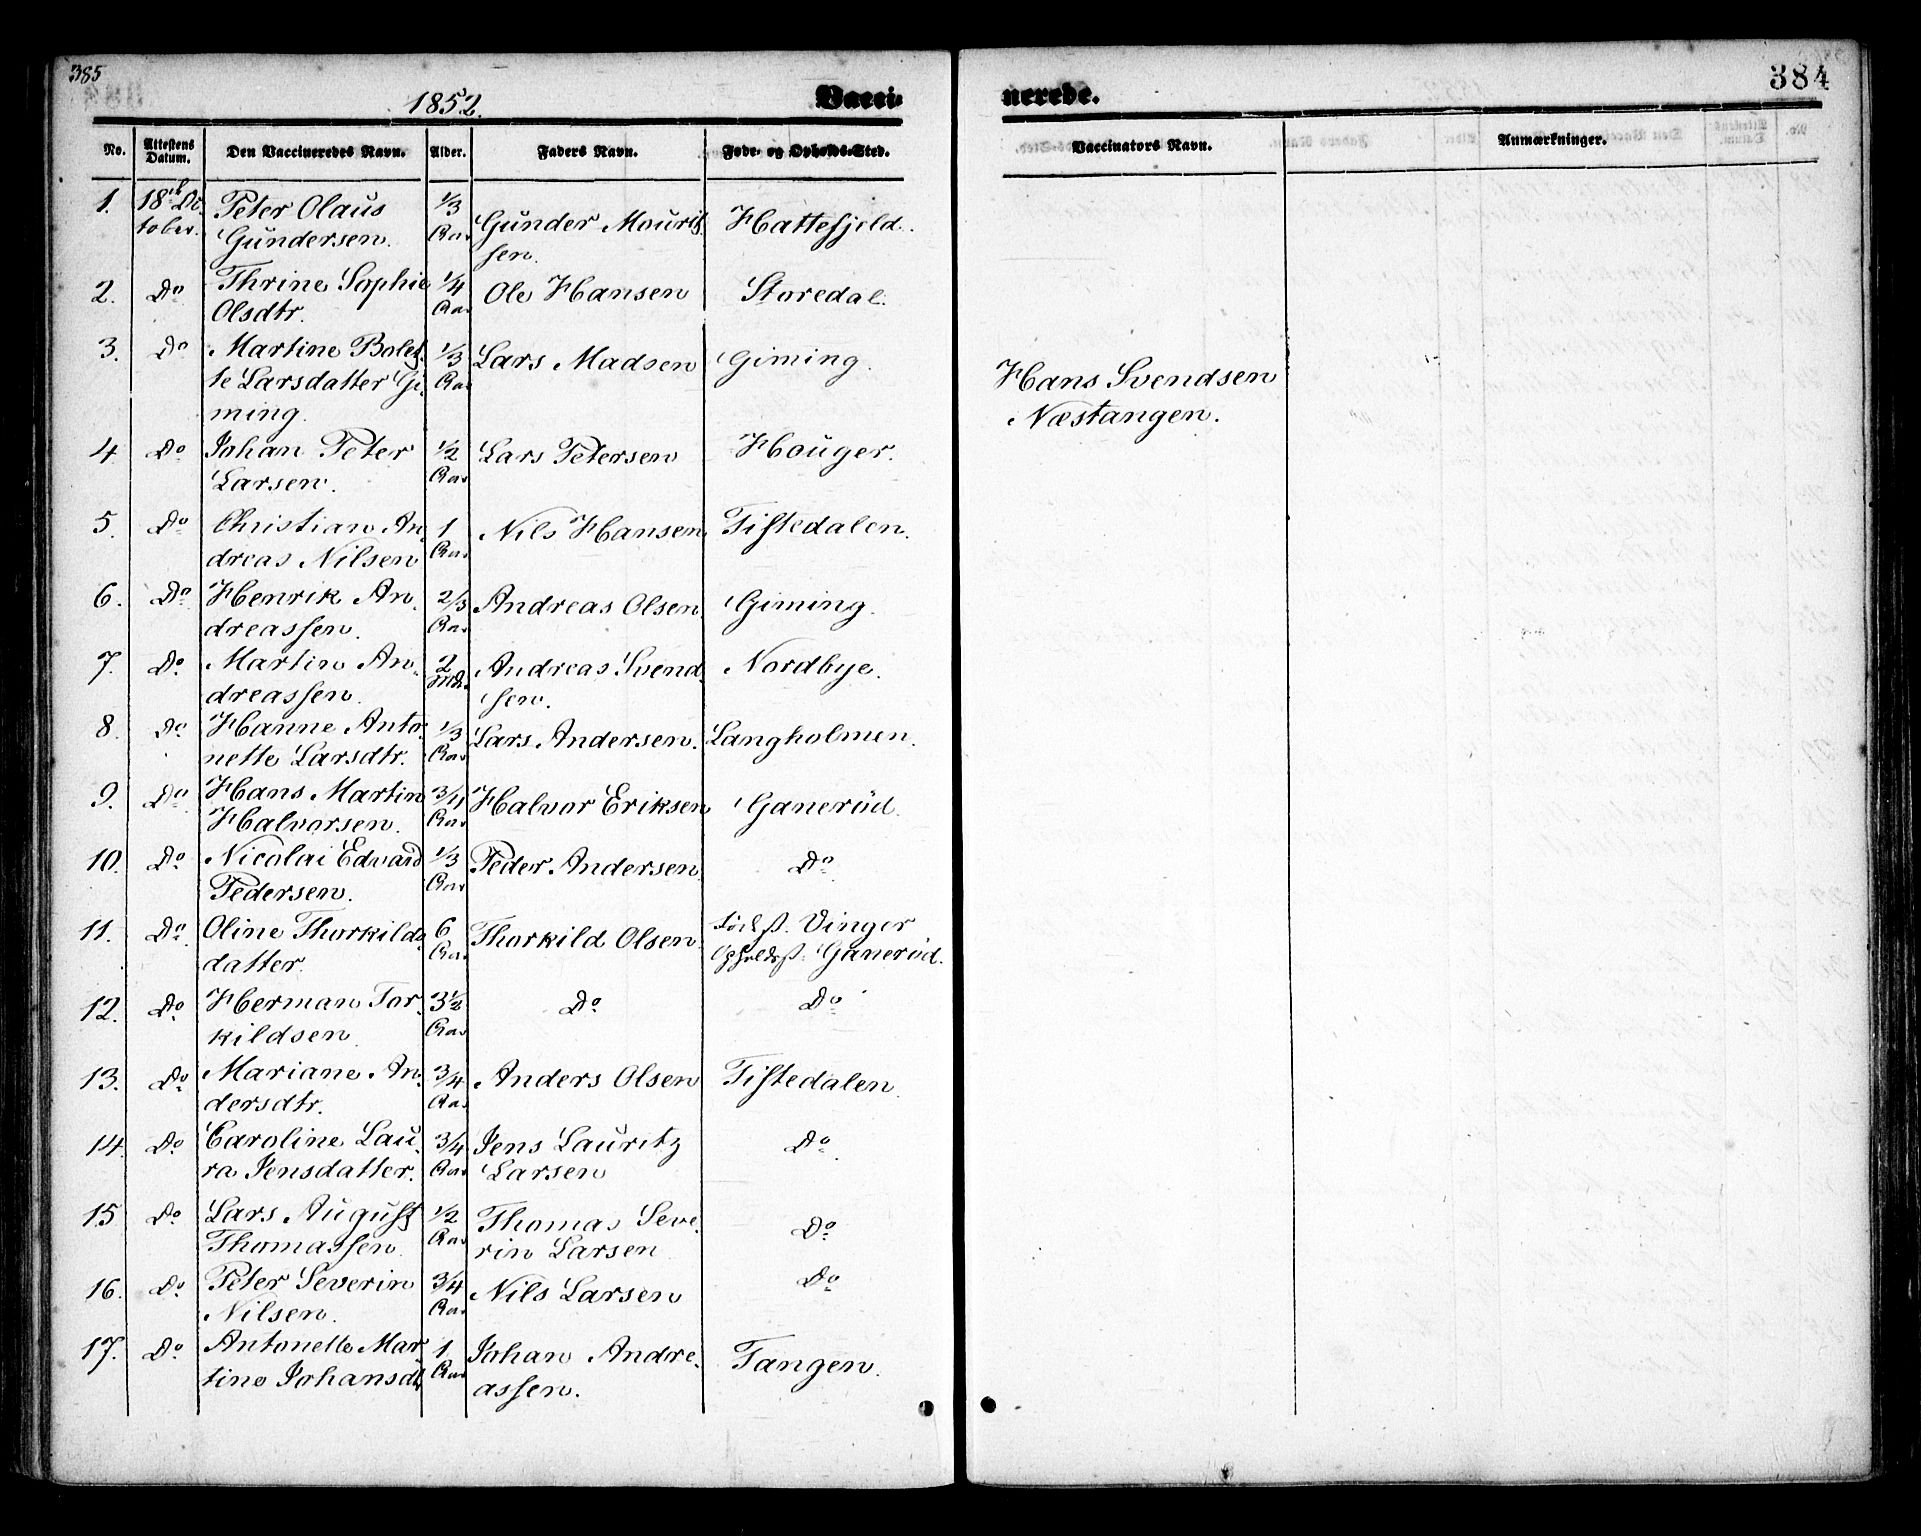 385
1852.
Vacci-
No.
Attestens Datum.
Den Vaccineredes Navn.
Alder.
Faders Navn.
Føde- og Opholds-Sted.
1. 18de Oc- Peter Olaus 1/3 Gunder Mourit- Hattefjeld.
tober. Gundersen. Aar sen.
2. Do Thrine Sophie 1/4 Ole Hansen Storedal.
Olsdtr. Aar
3. Do Martine Bolet- 1/3 Lars Madsen Giming.
te Larsdatter Gi- Aar
ming.
4. Do Johan Peter 1/2 Lars Petersen Houger.
Larsen. Aar
5. Do Christian An- 1 Nils Hansen Tistedalen.
dreas Nilsen Aar
6. Do Henrik An- 2/3 Andreas Olsen Giming.
dreassen. Aar
7. Do Martin An- 2 Andreas Svend- Nordbye.
dreassen. Md. sen.
8. Do Hanne Anto- 1/3 Lars Andersen. Langholmen.
nette Larsdtr. Aar
9. Do Hans Martin 3/4 Halvor Eriksen Ganerüd.
Halvorsen. Aar
10. Do Nicolai Edvard 1/3 Peder Andersen. Do
Pedersen. Aar
11. Do Oline Thorkilds- 6 Thorkild Olsen. Fødest. Vinger
datter. Aar Opholdsst. Ganerüd.
12. Do Herman Tor- 3 1/2 Do Do
kildsen Aar
13. Do Mariane An- 3/4 Anders Olsen Tistedalen.
dersdtr. Aar
14. Do Caroline Lau- 3/4 Jens Lauritz Do
ra Jensdatter. Aar Larsen
15 Do Lars August 1/2 Thomas Seve- Do
Thomassen. Aar rin Larsen
16. Do Peter Severin 3/4 Nils Larsen Do
Nilsen. Aar
17. Do Antonette Mar- 1 Johan Andre- Tangen.
tine Johansdtr Aar assen.
384
nerede.
Vaccinators Navn.
Anmærkninger.
Hans Svendsen
Næstangen.